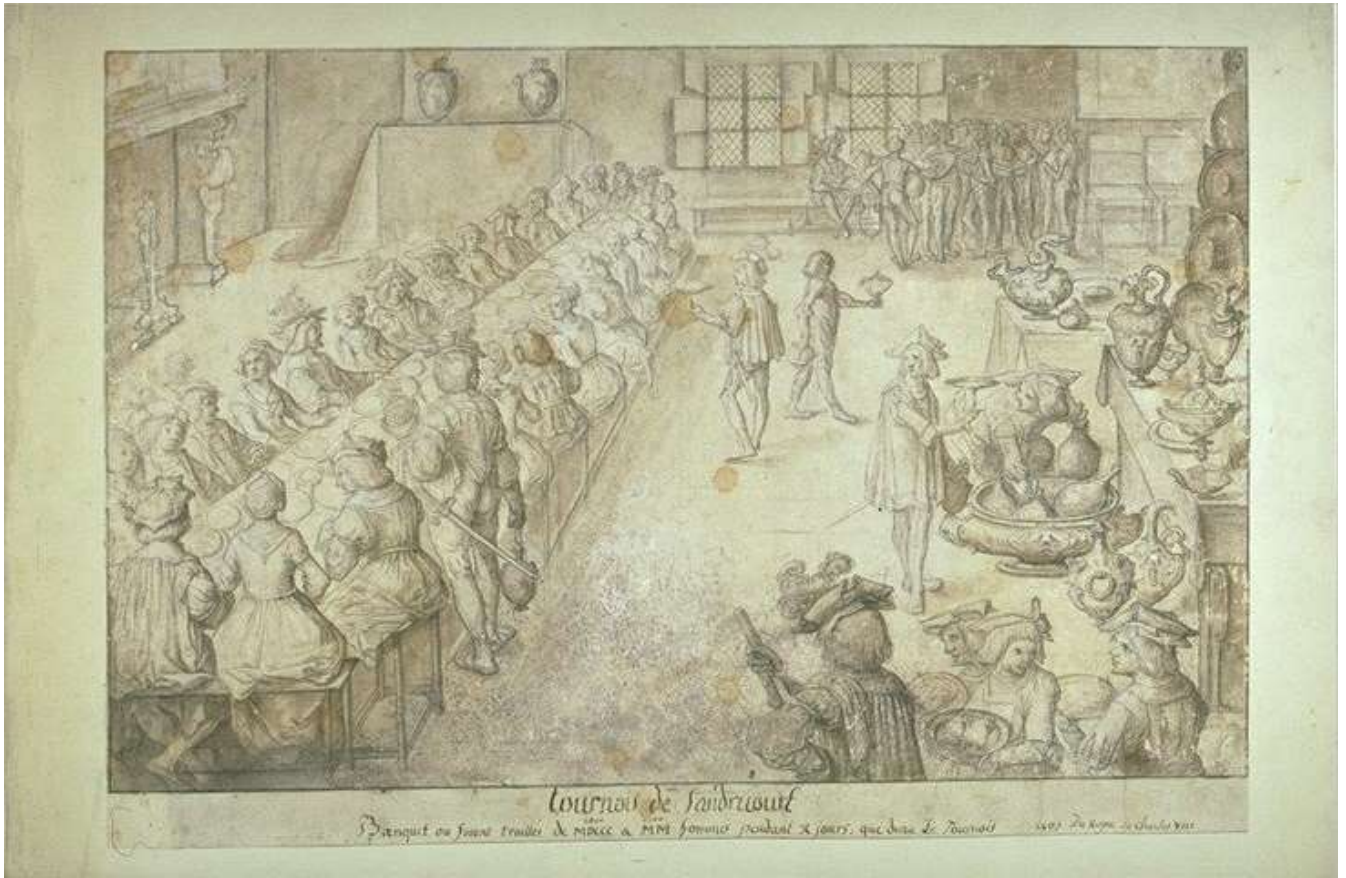 tournoy de Sandricourt
Banquet ou furent traittés de MDCCC a MM hommes pendant X jours, que dura le Tournois 1493 Du Regne de Charles VIII